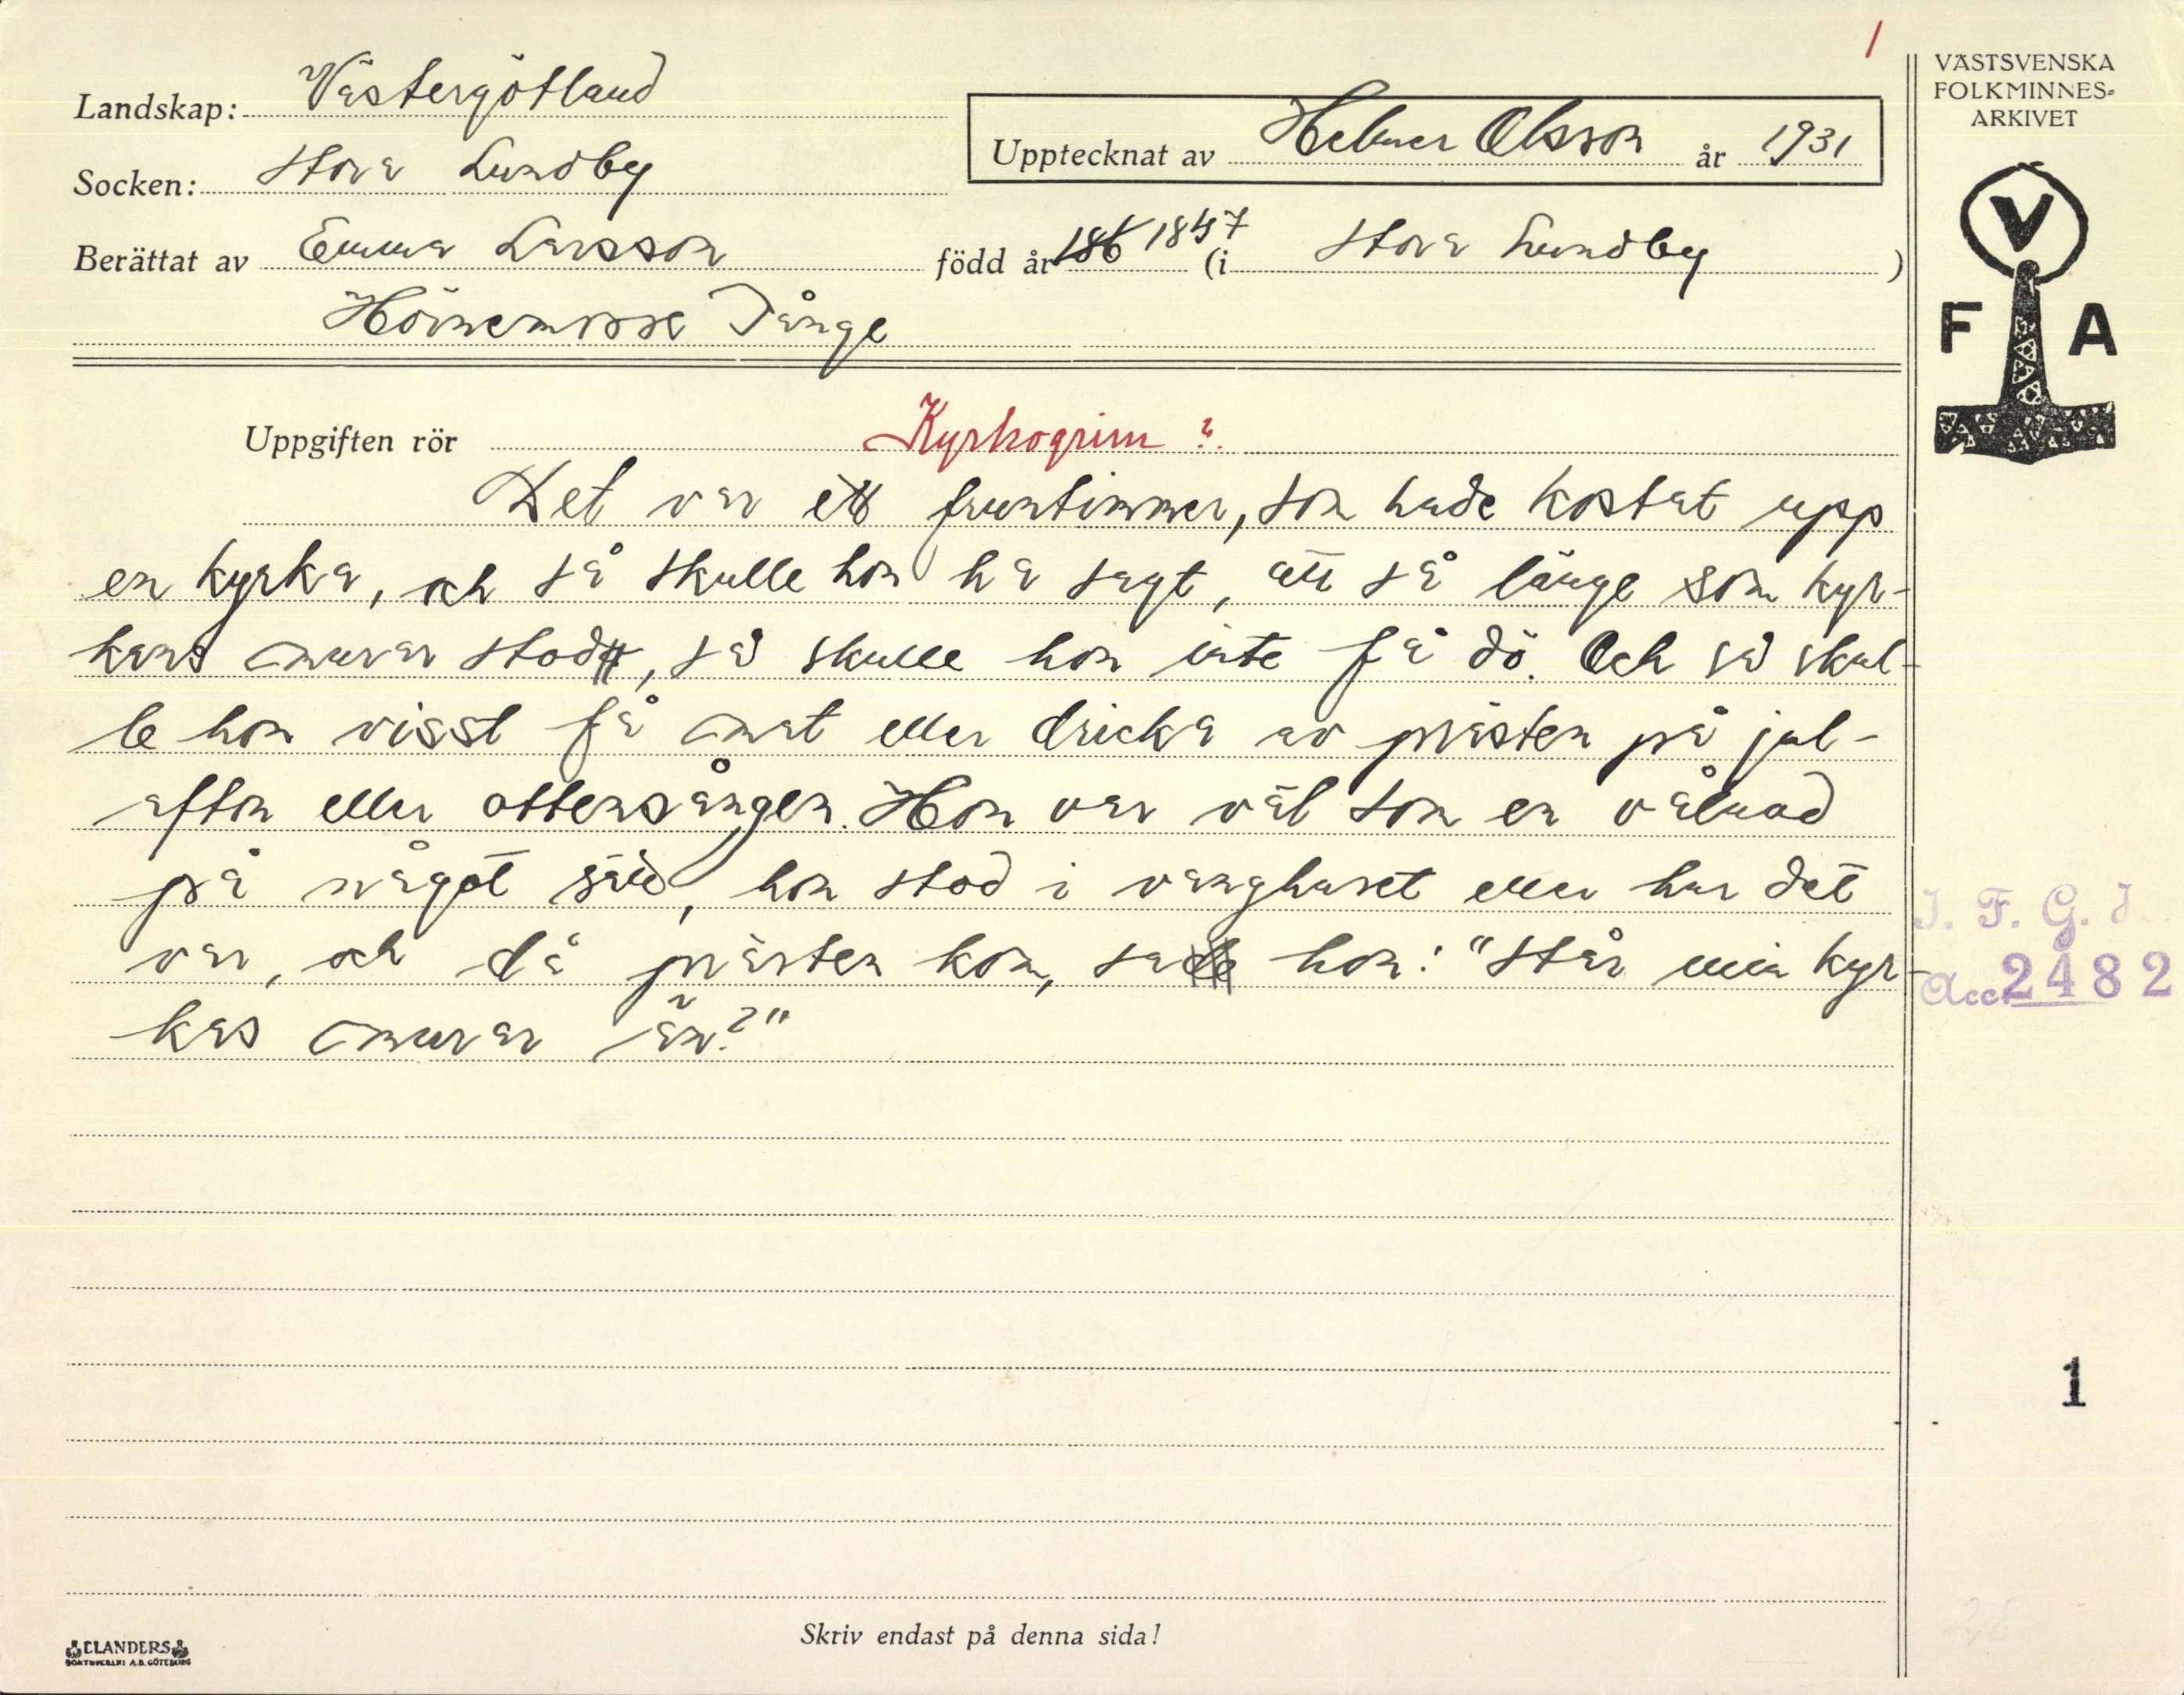 1
Landskap: Västergötland
Socken: Stora Lundby
Upptecknat av Helmer Olsson år 1931
Berättat av Emma Larsson född år 186 1847 (i Stora Lundby )
Tånge
VÄSTSVENSKA
FOLKMINNES-
ARKIVET
V
F A
Uppgiften rör Kyrkogrim ?
Det var ett fruntimmer, som hade kostat upp
en kyrka, och så skulle hon ha sagt, att så länge som kyr-
kans murar stod, så skulle hon inte få dö. Och så skul-
le hon visst få mat eller dricka av prästen på jul-
afton eller ottensången. Hon var väl som en vålnad
på något sätt, hon stod i vanghuset eller hur det
var, och då prästen kom, sade hon: "Står min kyr-
kas murar än?"
I. F. G. H.
Acc. 2482
1
ELANDERS
BOKTRYCKERI A.B. GÖTEBORG
Skriv endast på denna sida!